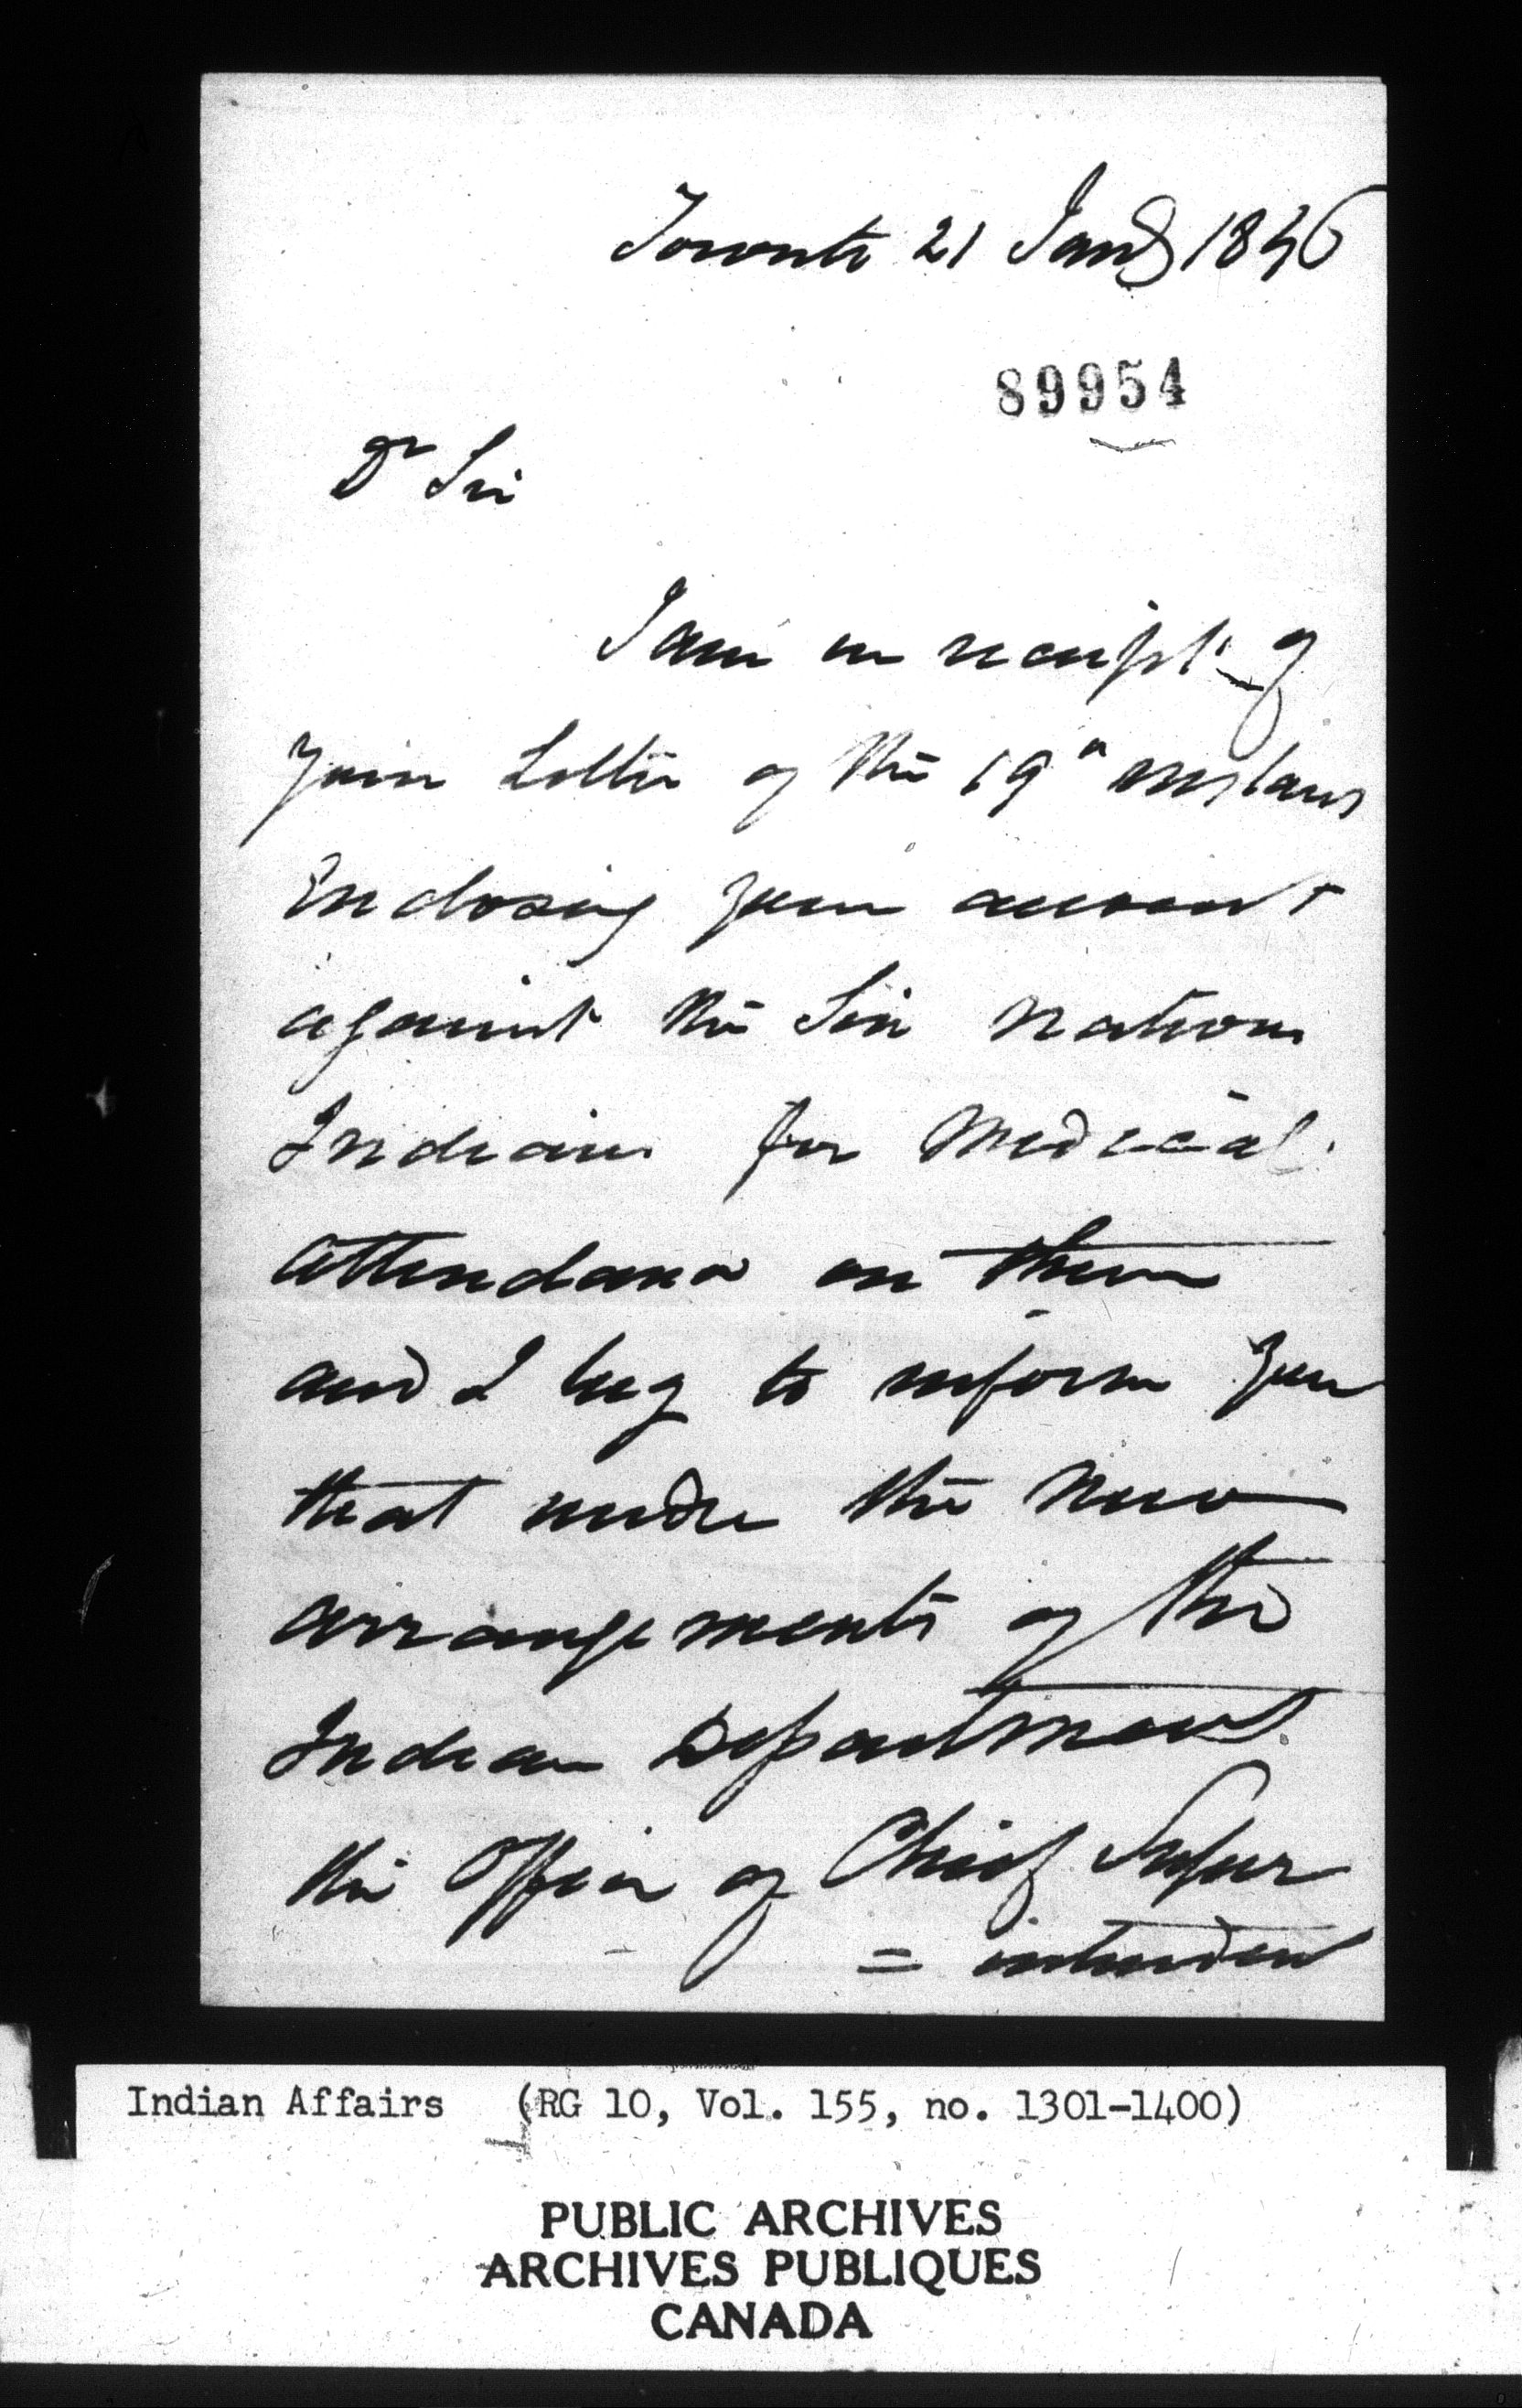 Toronto 21 Jany 1846
89954
Dr Sir
I am in receipt of
your Letter of the 19th instant
Enclosing your account
against the Six Nations
Indians for Medical
attendance on them
and I beg to inform you
that under the New
arrangements of the
Indian Department
the Office of Chief Super
= intendent
Indian Affairs (RG 10, Vol. 155, no. 1301-1400)
PUBLIC ARCHIVES
ARCHIVES PUBLIQUES
CANADA